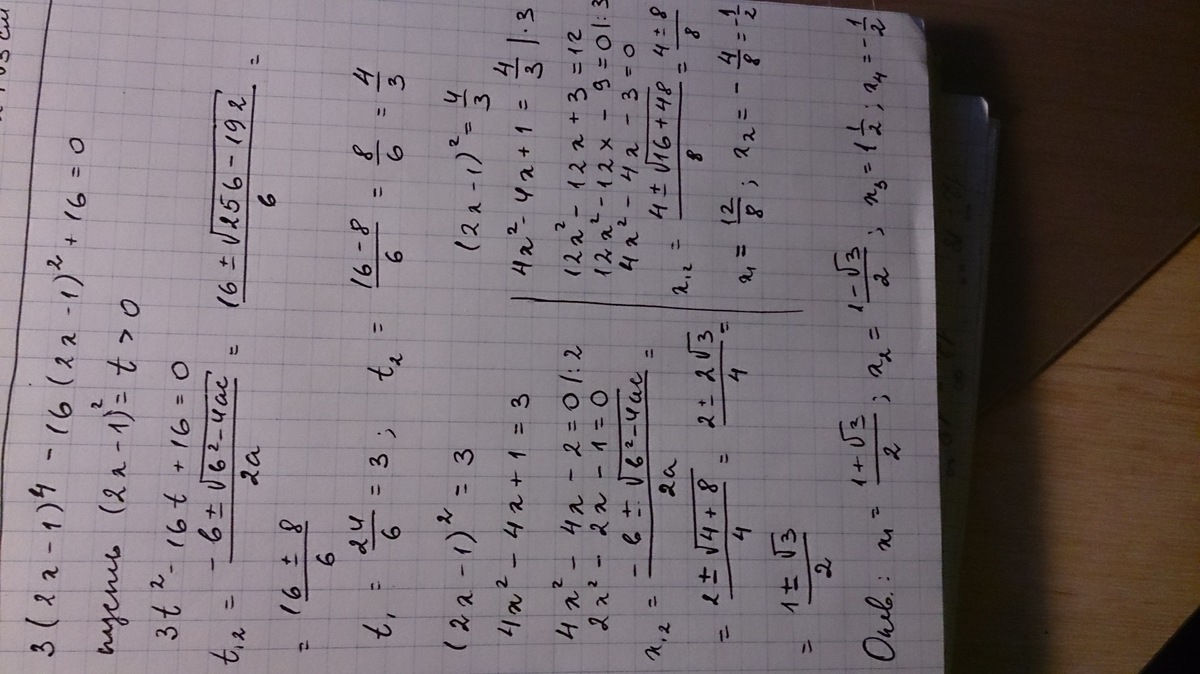 3(2x-1)^4 - 16(2x-1)^2 + 16 = 0
пусть (2x-1)^2 = t > 0
3t^2 - 16t + 16 = 0
t_{1,2} = \frac{-b ± √(b^2-4ac)}{2a} = \frac{16 ± √(256-192)}{6} =
= \frac{16 ± 8}{6}
t_1 = \frac{24}{6} = 3; t_2 = \frac{16-8}{6} = \frac{8}{6} = \frac{4}{3}
(2x-1)^2 = 3
4x^2 - 4x + 1 = 3
4x^2 - 4x - 2 = 0 |:2
2x^2 - 2x - 1 = 0
x_{1,2} = \frac{-b ± √(b^2-4ac)}{2a} =
= \frac{2 ± √(4+8)}{4} = \frac{2 ± 2√3}{4} =
= \frac{1 ± √3}{2}
(2x-1)^2 = \frac{4}{3}
4x^2 - 4x + 1 = \frac{4}{3} | ·3
12x^2 - 12x + 3 = 12
12x^2 - 12x - 9 = 0 |:3
4x^2 - 4x - 3 = 0
x_{1,2} = \frac{4 ± √(16+48)}{8} = \frac{4 ± 8}{8}
x_1 = \frac{12}{8}; x_2 = -\frac{4}{8} = -\frac{1}{2}
Отв.: x_1 = \frac{1+√3}{2}; x_2 = \frac{1-√3}{2}; x_3 = 1\frac{1}{2}; x_4 = -\frac{1}{2}